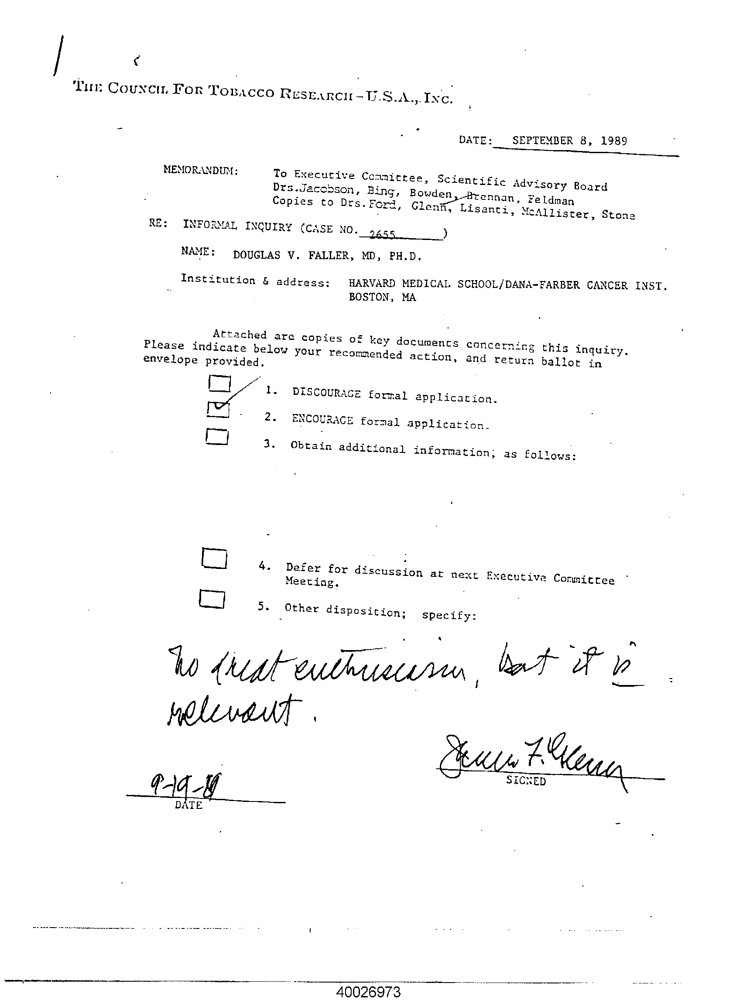 THE COUNCIL FOR TOBACCO RESEARCH-U.S.A., INC.
DATE: SEPTEMBER 8, 1989
MEMORANDUM: To Executive Committee, Scientific Advisory Board
Drs. Jacobson, Bing, Bowden, Brennan, Feldman
Copies to Drs. Ford, Glenn, Lisanti, McAllister, Stone
RE: INFORMAL INQUIRY (CASE NO. 2655 )
NAME: DOUGLAS V. FALLER, MD, PH.D.
Institution & address: HARVARD MEDICAL SCHOOL/DANA-FARBER CANCER INST.
BOSTON, MA
Attached are copies of key documents concerning this inquiry.
Please indicate below your recommended action, and return ballot in
envelope provided.
1. DISCOURAGE formal application.
2. ENCOURAGE formal application.
3. Obtain additional information; as follows:
4. Defer for discussion at next Executive Committee
Meeting.
5. Other disposition; specify:
No great enthusiasm, but it is
relevant.
James F. Glenn
SIGNED
9-19-89
DATE
40026973